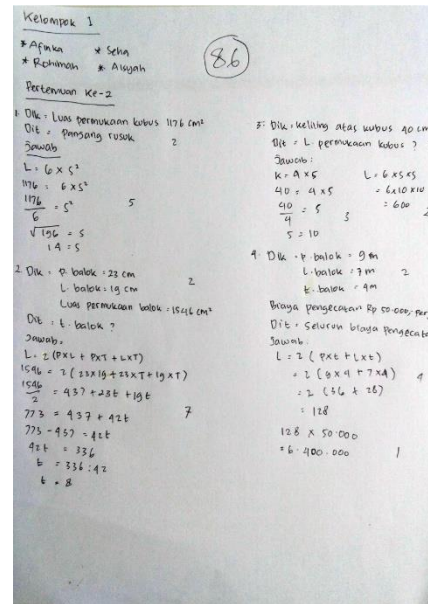 Kelompok 1
* Afinka * Sehn
* Rohimah * Aisyah
86
Pertemuan Ke-2
1. Dik : Luas permukaan kubus 1176 cm²
Dit : Panjang rusuk
2
Jawab
L = 6 x s²
1176 = 6 x s²
1176/6 = s²
5
√196 = s
14 = s
2. Dik : P. balok = 23 cm
L. balok = 19 cm
2
Luas permukaan balok = 1546 cm²
Dit : t. balok ?
Jawab.
L = 2 (PXL + PXT + LXT)
1546 = 2 (23x19 + 23xT + 19xT)
1546/2 = 437 + 23t + 19t
773 = 437 + 42t
7
773 - 437 = 42t
42t = 336
t = 336 : 42
t = 8
3. Dik : keliling atas kubus 40 cm
Dit : L. permukaan kubus ?
Jawab :
K = 4 x s L = 6 x s x s
40 = 4 x s = 6 x 10 x 10
40/4 = s = 600
3
s = 10
4. Dik : P. balok = 9 m
L. balok = 7 m
2
t. balok = 4 m
Biaya pengecatan Rp 50.000,- per
Dit : Seluruh biaya pengecata
Jawab :
L = 2 (pxt + Lxt)
= 2 (9x4 + 7x4)
4
= 2 (36 + 28)
= 128
128 x 50.000
= 6.400.000
1